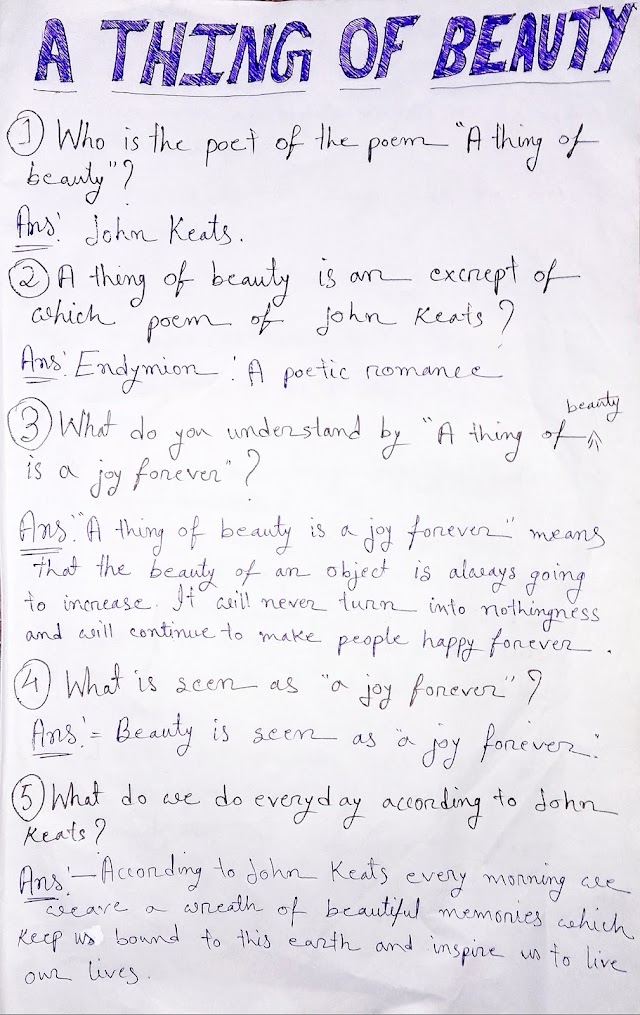 A THING OF BEAUTY
① Who is the poet of the poem "A thing of
beauty"?
Ans: John Keats.
② A thing of beauty is an excrept of
which poem of John Keats?
Ans: Endymion : A poetic romance
beauty
③ What do you understand by "A thing of
is a joy forever"?
Ans: "A thing of beauty is a joy forever" means
that the beauty of an object is always going
to increase. It will never turn into nothingness
and will continue to make people happy forever.
④ What is seen as "a joy forever"?
Ans:- Beauty is seen as "a joy forever."
⑤ What do we do everyday according to John
Keats?
Ans:- According to John Keats every morning we
weave a wreath of beautiful memories which
keep us bound to this earth and inspire us to live
our lives.